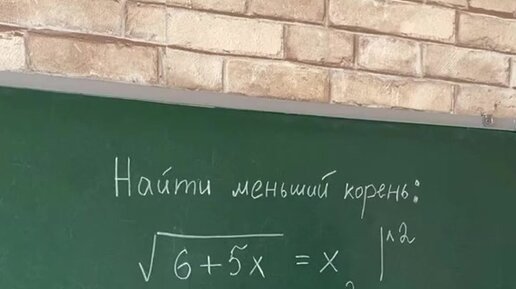 Найти меньший корень:
√6+5x = x |^2